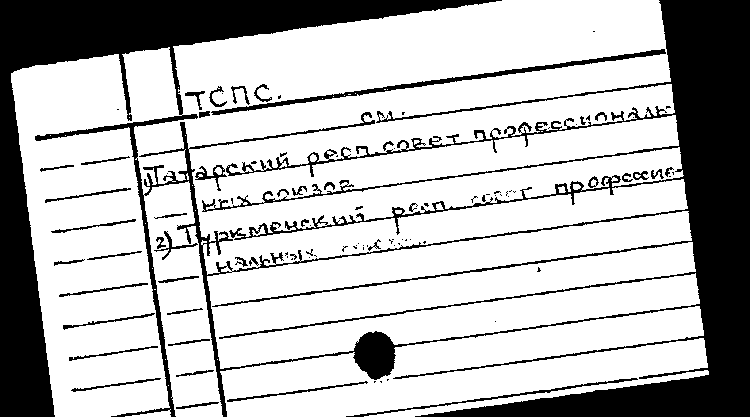 ТСПС.
см.
1) Татарский респ. совет профессиональ-
ных союзов
2) Туркменский респ. совет профессио-
нальных союзов